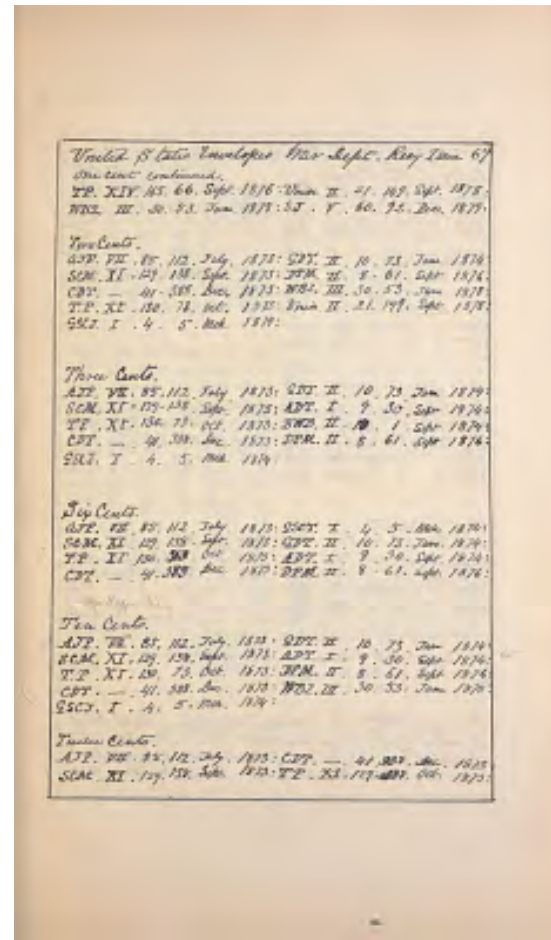 United States Envelopes War Dept. Reay Issue 67
One cent continued.
TP. XIV. 165. 66. Sept. 1876: Union II. 21. 149. Sept. 1878:
WBL III. 30. 53. June 1878: SJ. V. 60. 93. Dec. 1879:
Two Cents.
AJP. VII. 85. 112. July 1873: GDT. II. 10. 73. June 1874:
SCM. XI. 129. 138. Sept. 1873: DPM. II. 8. 61. Sept. 1876:
CDT. — 41. 388. Dec. 1873: WBL. III. 30. 53. June 1878:
T.P. XI. 130. 73. Oct. 1873: Union II. 21. 149. Sept 1878:
GSCJ. I. 4. 5. Mch. 1874:
Three Cents.
AJP. VII. 85. 112. July 1873: GDT. II. 10. 73. June 1874:
SCM. XI. 129. 138. Sept. 1873: ADT. I. 9. 30. Sept 1874:
TP. XI. 130. 73. Oct 1873: II. 1. Sept 1874:
CDT. — 41. 388. Dec 1873: DPM. II. 8. 61. Sept 1876:
GSCJ. I. 4. 5. Mch 1874:
Six Cents.
AJP. VII. 85. 112. July 1873: GSCJ. I. 4. 5. Mch 1874:
SCM. XI. 129. 138. Sept. 1873: GDT. II. 10. 73. June. 1874:
T.P. XI. 130. Oct 1873: ADT. I. 9. 30. Sept. 1874:
CDT. — 41. 388 Dec 1873: DPM. II. 8. 61. Sept. 1876:
Ten Cents.
AJP. VII. 85. 112. July. 1873: GDT. II. 10. 73. June 1874:
SCM. XI. 129. 138. Sept. 1873: ADT. I. 9. 30. Sept 1874:
T.P. XI. 130. 73. Oct. 1873: DPM. II. 8. 61. Sept 1876
CDT. — 41. 388. Dec. 1873: WBL. III. 30. 53. June 1878:
GSCJ. I. 4. 5. Mch. 1874:
Twelve Cents.
AJP. VII. 85. 112. July. 1873: CDT. — 41. 388. Dec. 1873
SCM. XI. 129. 138. Sept. 1873: T.P. XI. 129. Oct. 1873: